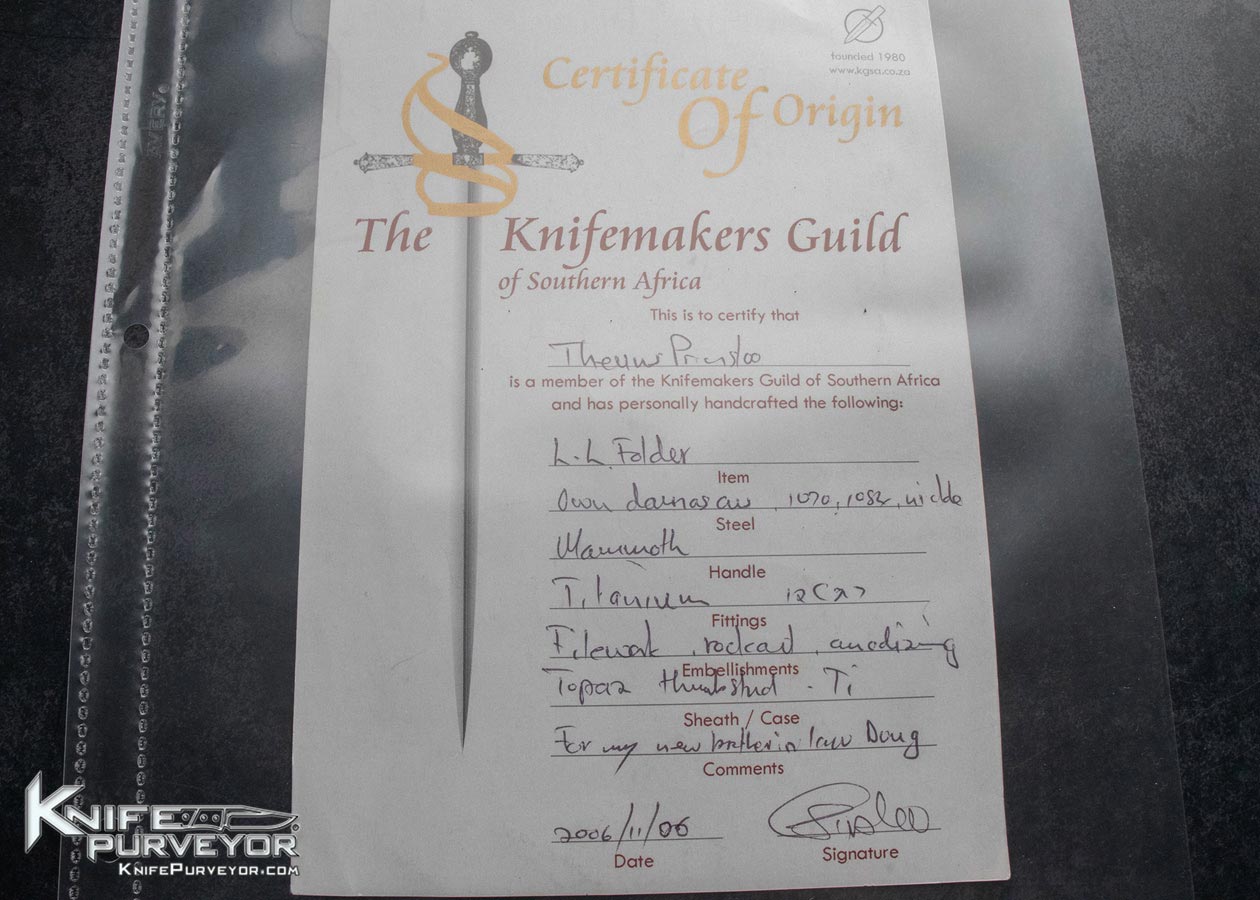 founded 1980
www.kgsa.co.za
Certificate
Of Origin
The Knifemakers Guild
of Southern Africa
This is to certify that
Theuns Prinsloo
is a member of the Knifemakers Guild of Southern Africa
and has personally handcrafted the following:
L.L. Folder
Item
Own damascus, 1070, 1082,
Steel
Mammoth
Handle
Titanium
Fittings
Filework, anodizing
Embellishments
Topaz thumbstud - Ti
Sheath / Case
For my new brother in law Doug
Comments
2006/11/06
Date
Signature
AVERY
KNIFE
PURVEYOR
KNIFEPURVEYOR.COM